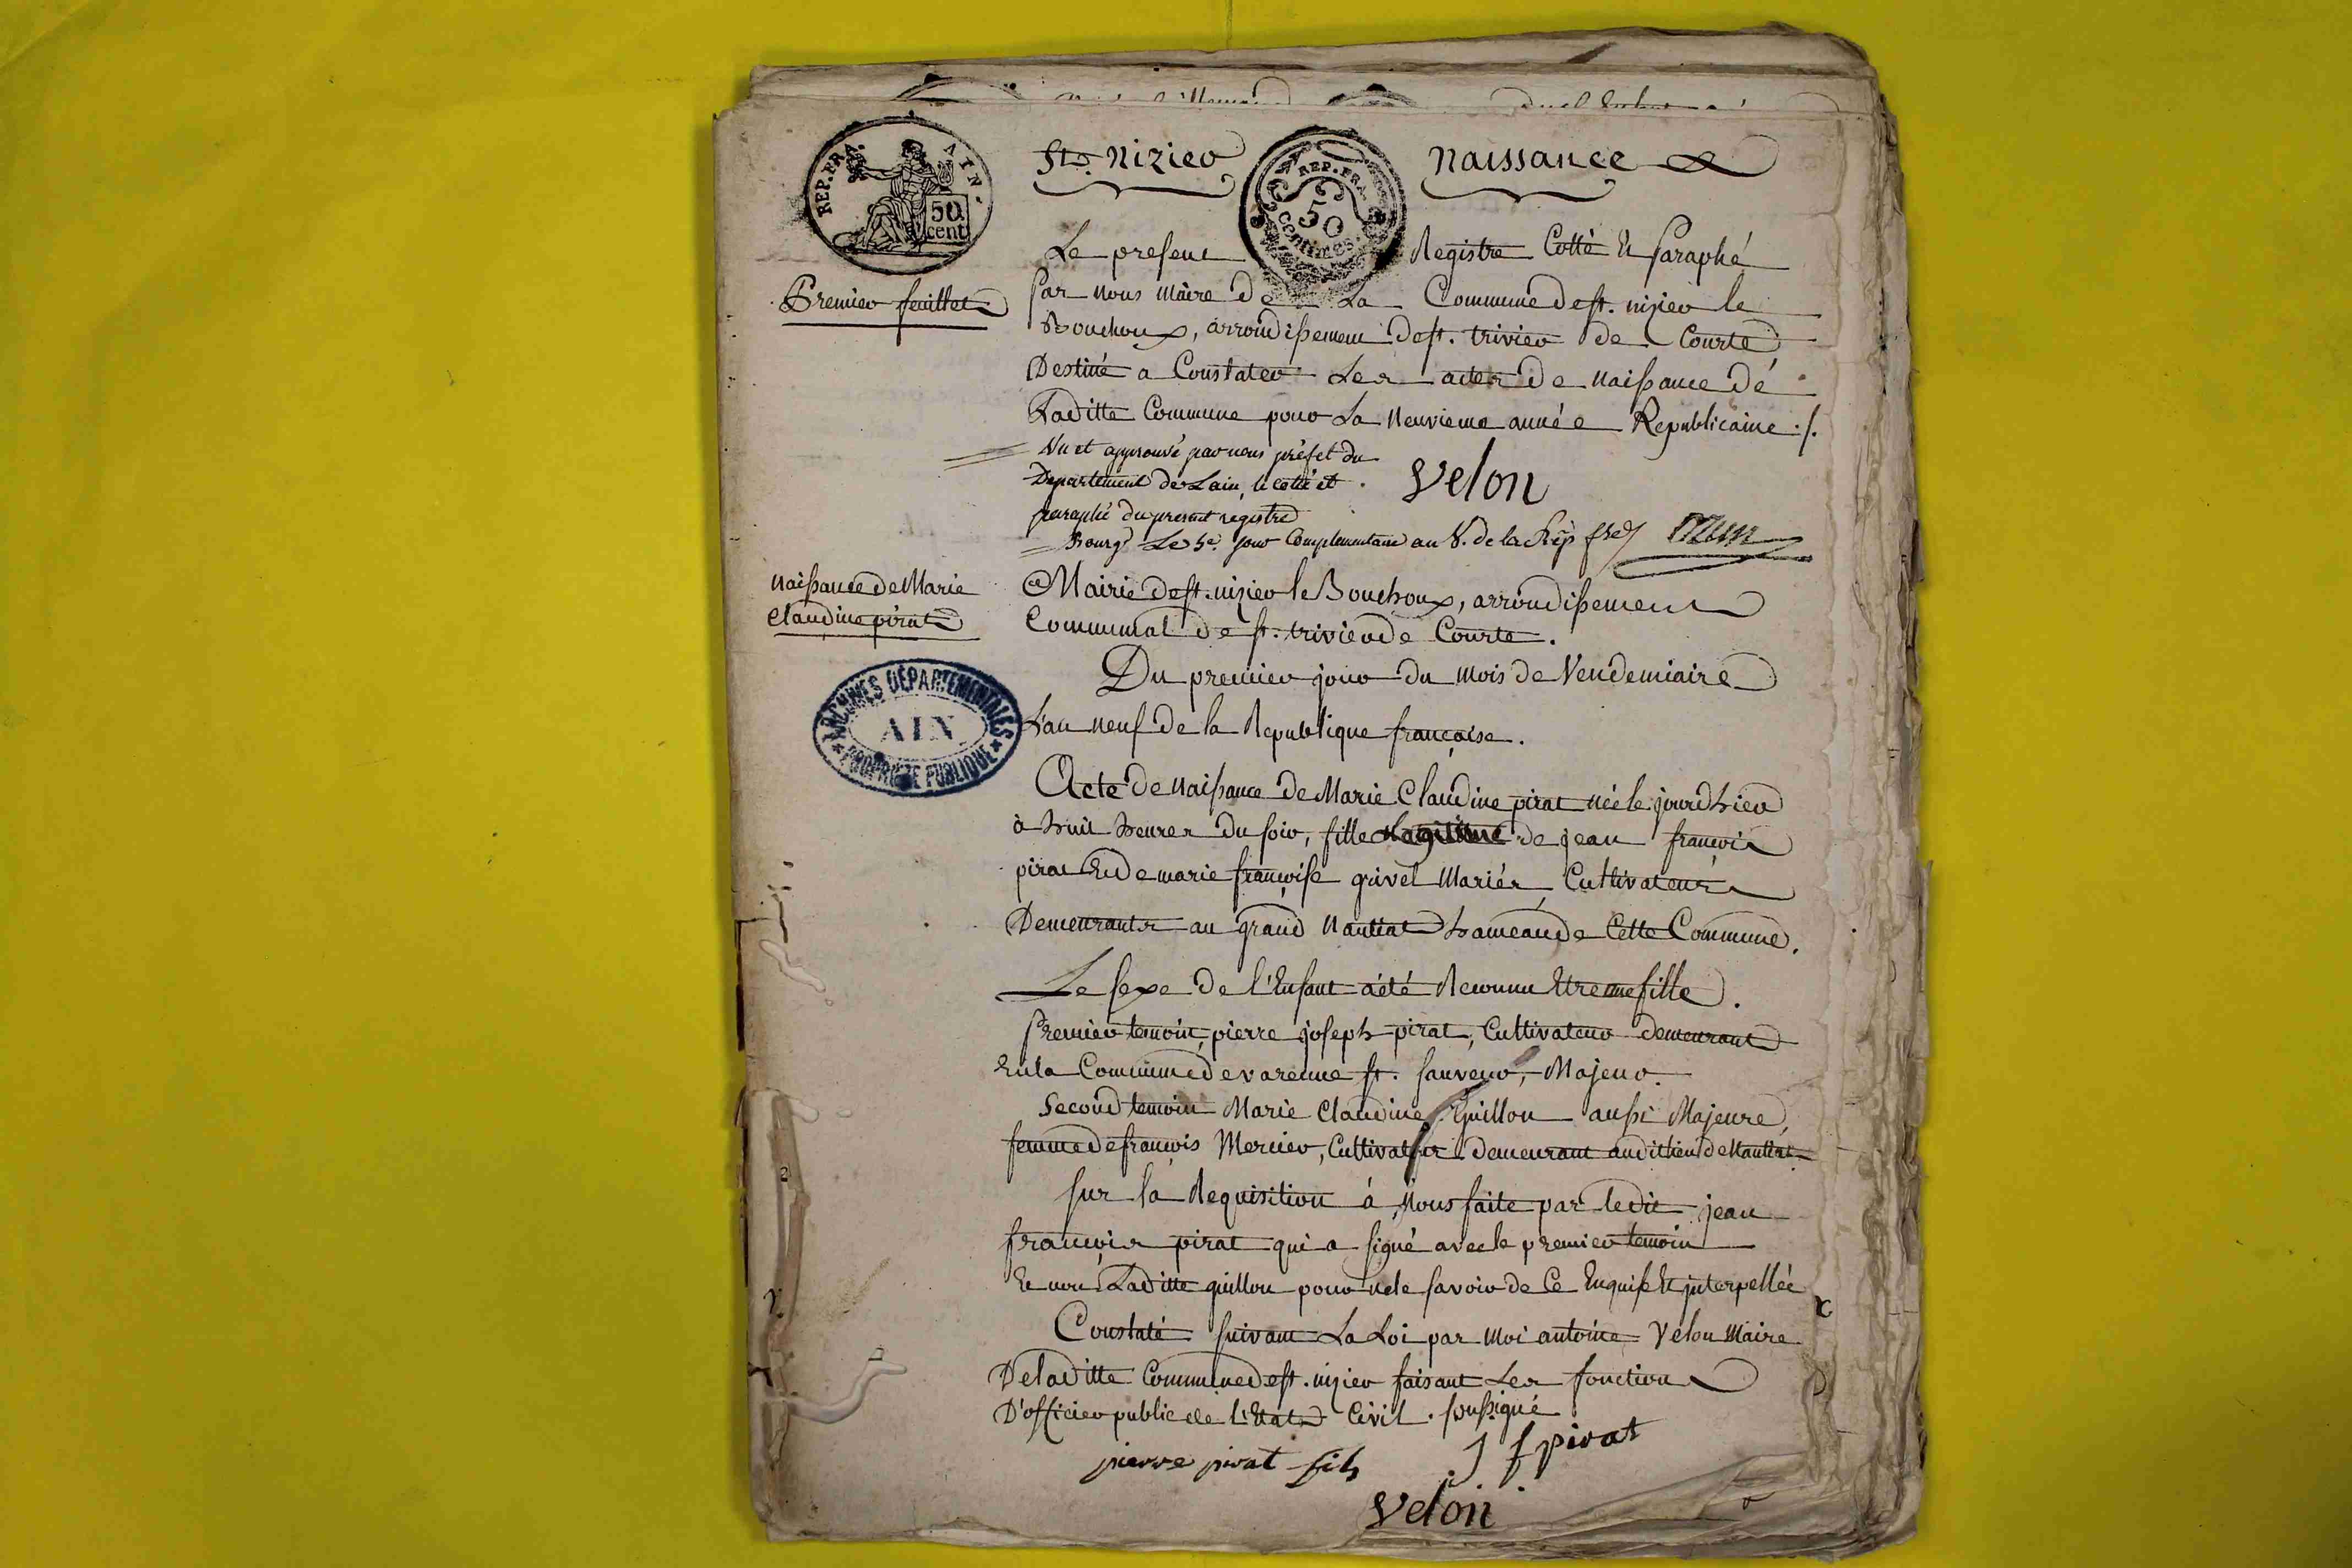 REP. FRA. AIN.
50 cent
St. Nizier
REP. FRA
50
centimes
Naissance
Premier feuillet
Le present Registre Cotté Et Paraphé
Par nous Maire de La Commune de st. nizier le
Bouchoux, arrondissement de st. trivier de Courte
Destiné a Constater Les actes de naissance de
Laditte Commune pour La Neuvieme année Republicaine ./.
Vu et approuvé par nous préfet du
Departement de Lain, le cotté et
paraphé du present registre
Velon
Bourg Le 5e. jour Complementaire an 8. de la Rép fse
Naissance de Marie
Claudine pirat
Mairie de st. nizier le Bouchoux, arrondissement
Communal de st. trivier de Courte.
Du premier jour du mois de Vendemiaire
L'an neuf de la Republique françoise.
ARCHIVES DÉPARTEMENTALES
AIN
PROPRIÉTÉ PUBLIQUE
Acte de naissance de Marie Claudine pirat née le jourd'hier
à huit heures du soir, fille de jean françois
pirat Et de marie françoise grivel Mariés, Cultivateurs
Demeurants au grand Nantiat hameau de Cette Commune.
Le sexe de l'Enfant a été Reconnu Etre une fille.
Premier temoin, pierre joseph pirat, Cultivateur demeurant
En la Commune de varenne st. sauveur, Majeur.
Second temoin Marie Claudine Guillon aussi Majeure,
femme de françois Mercier, Cultivateur demeurant audit lieu de Nantiat
Sur la Requisition à Nous faite par ledit jean
françois pirat qui a signé avec le premier temoin
Et non Laditte guillon pour ne le savoir de Ce Enquise Et interpellée
Constaté suivant La Loi par Moi antoine Velon Maire
De laditte Commune de st. nizier faisant Les fonctions
D'officier public de l'Etat Civil. soussigné
pierre pirat fils
J f pirat
Velon